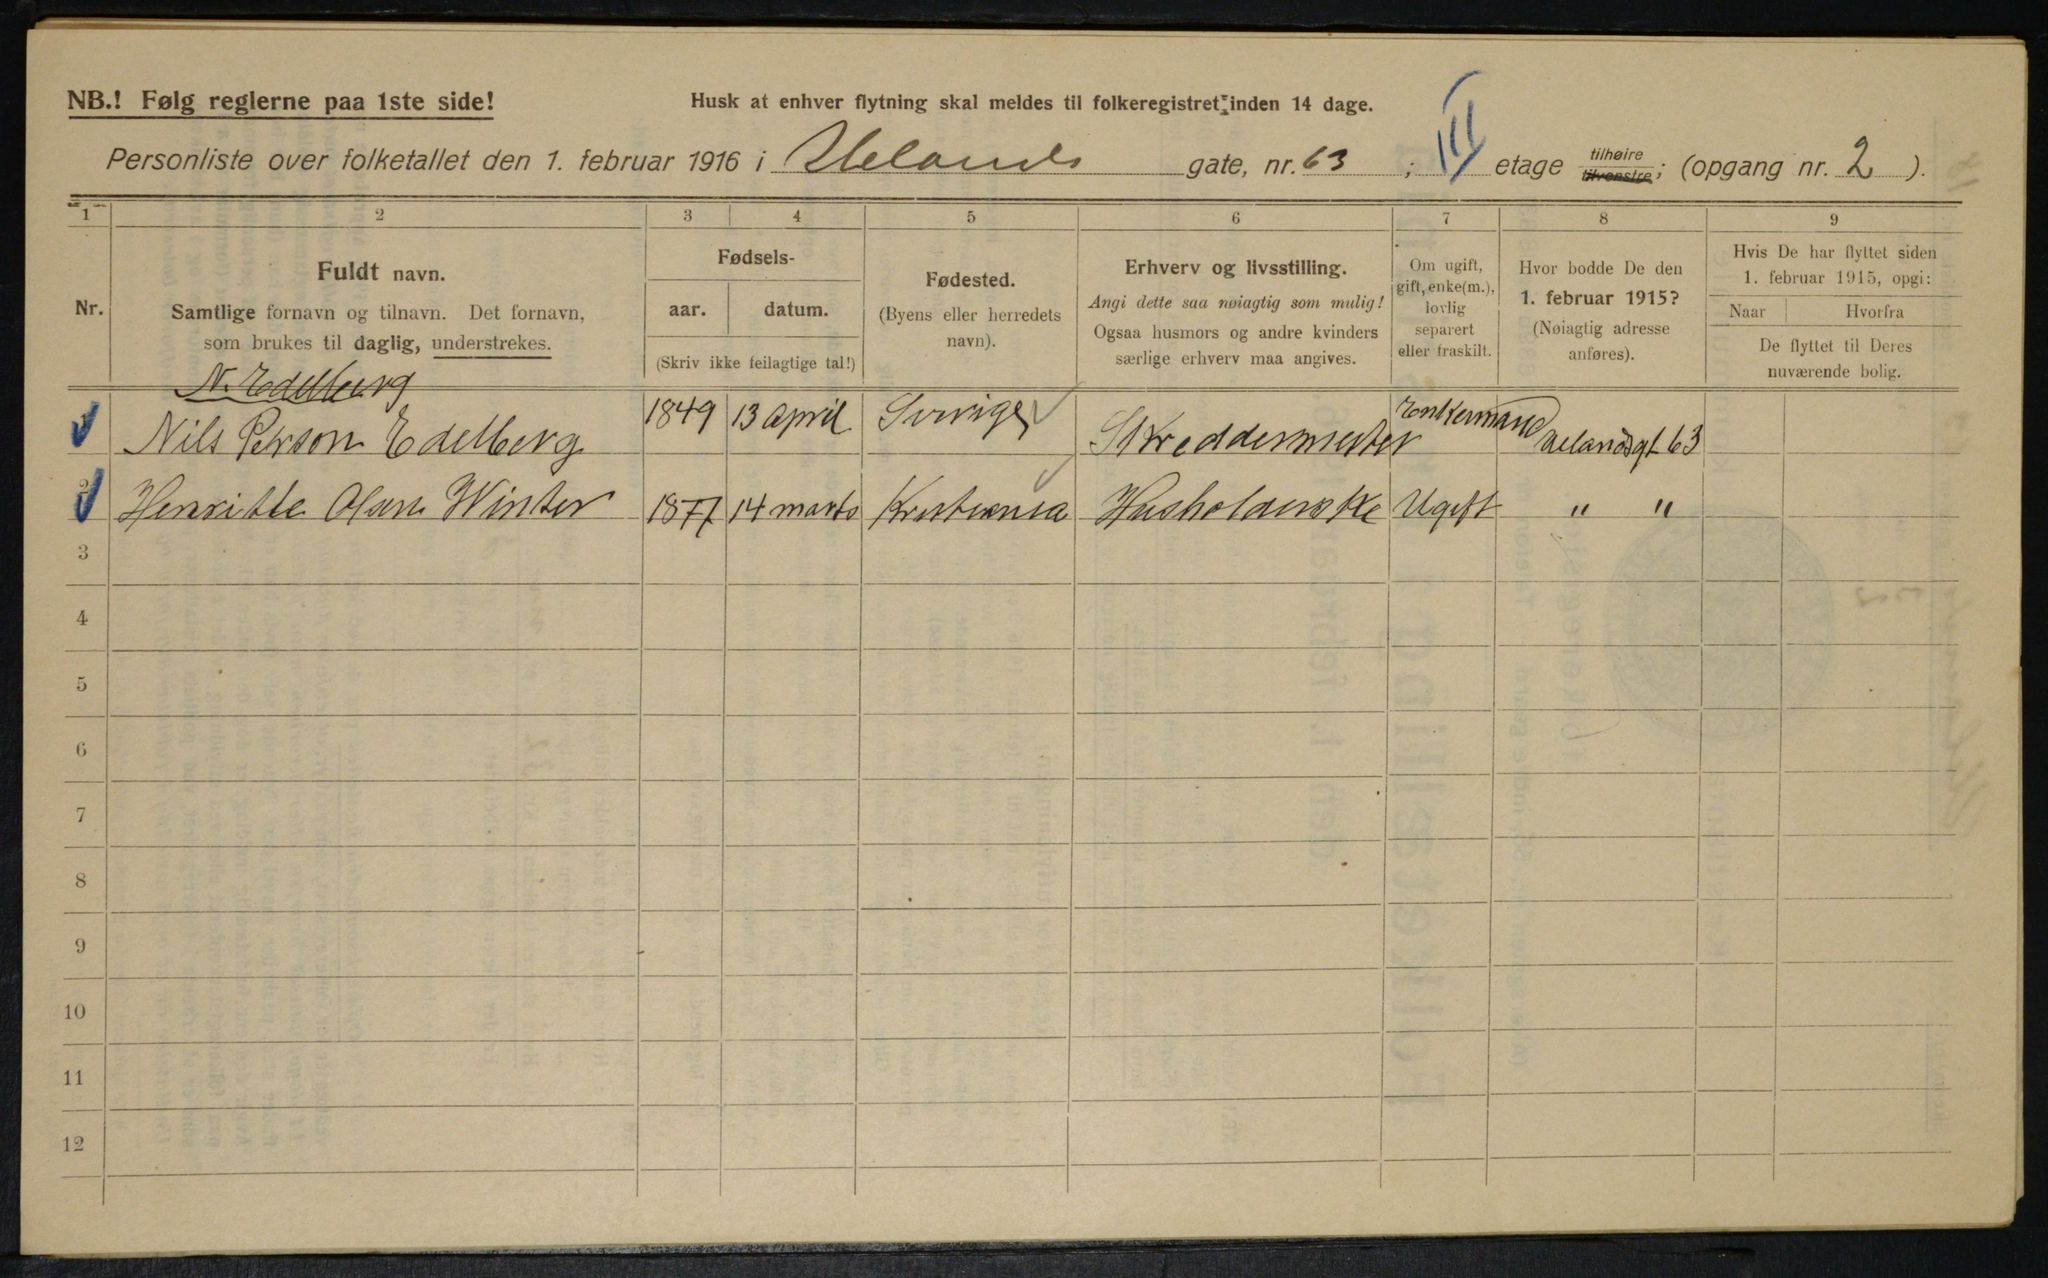 NB.! Følg reglerne paa 1ste side! Husk at enhver flytning skal meldes til folkeregistret inden 14 dage.
Personliste over folketallet den 1. februar 1916 i Uelands gate, nr. 63 ; III etage tilhøire tilvenstre; (opgang nr. 2 ).
1 2 3 4 5 6 7 8 9
Nr.
Fuldt navn.
Samtlige fornavn og tilnavn. Det fornavn,
som brukes til daglig, understrekes.
Fødsels-
aar. datum.
(Skriv ikke feilagtige tal!)
Fødested.
(Byens eller herredets
navn).
Erhverv og livsstilling.
Angi dette saa nøiagtig som mulig!
Ogsaa husmors og andre kvinders
særlige erhverv maa angives.
Om ugift,
gift, enke(m.),
lovlig
separert
eller fraskilt.
Hvor bodde De den
1. februar 1915?
(Nøiagtig adresse
anføres).
Hvis De har flyttet siden
1. februar 1915, opgi:
Naar Hvorfra
De flyttet til Deres
nuværende bolig.
N. Edelberg
1 Nils Person Edelberg 1849 13 april Sverige Skreddermester Enkemand Uelandsgt 63
2 Henritte Olsen Winter 1877 14 marts Kristiania Husholderske Ugift " "
3
4
5
6
7
8
9
10
11
12